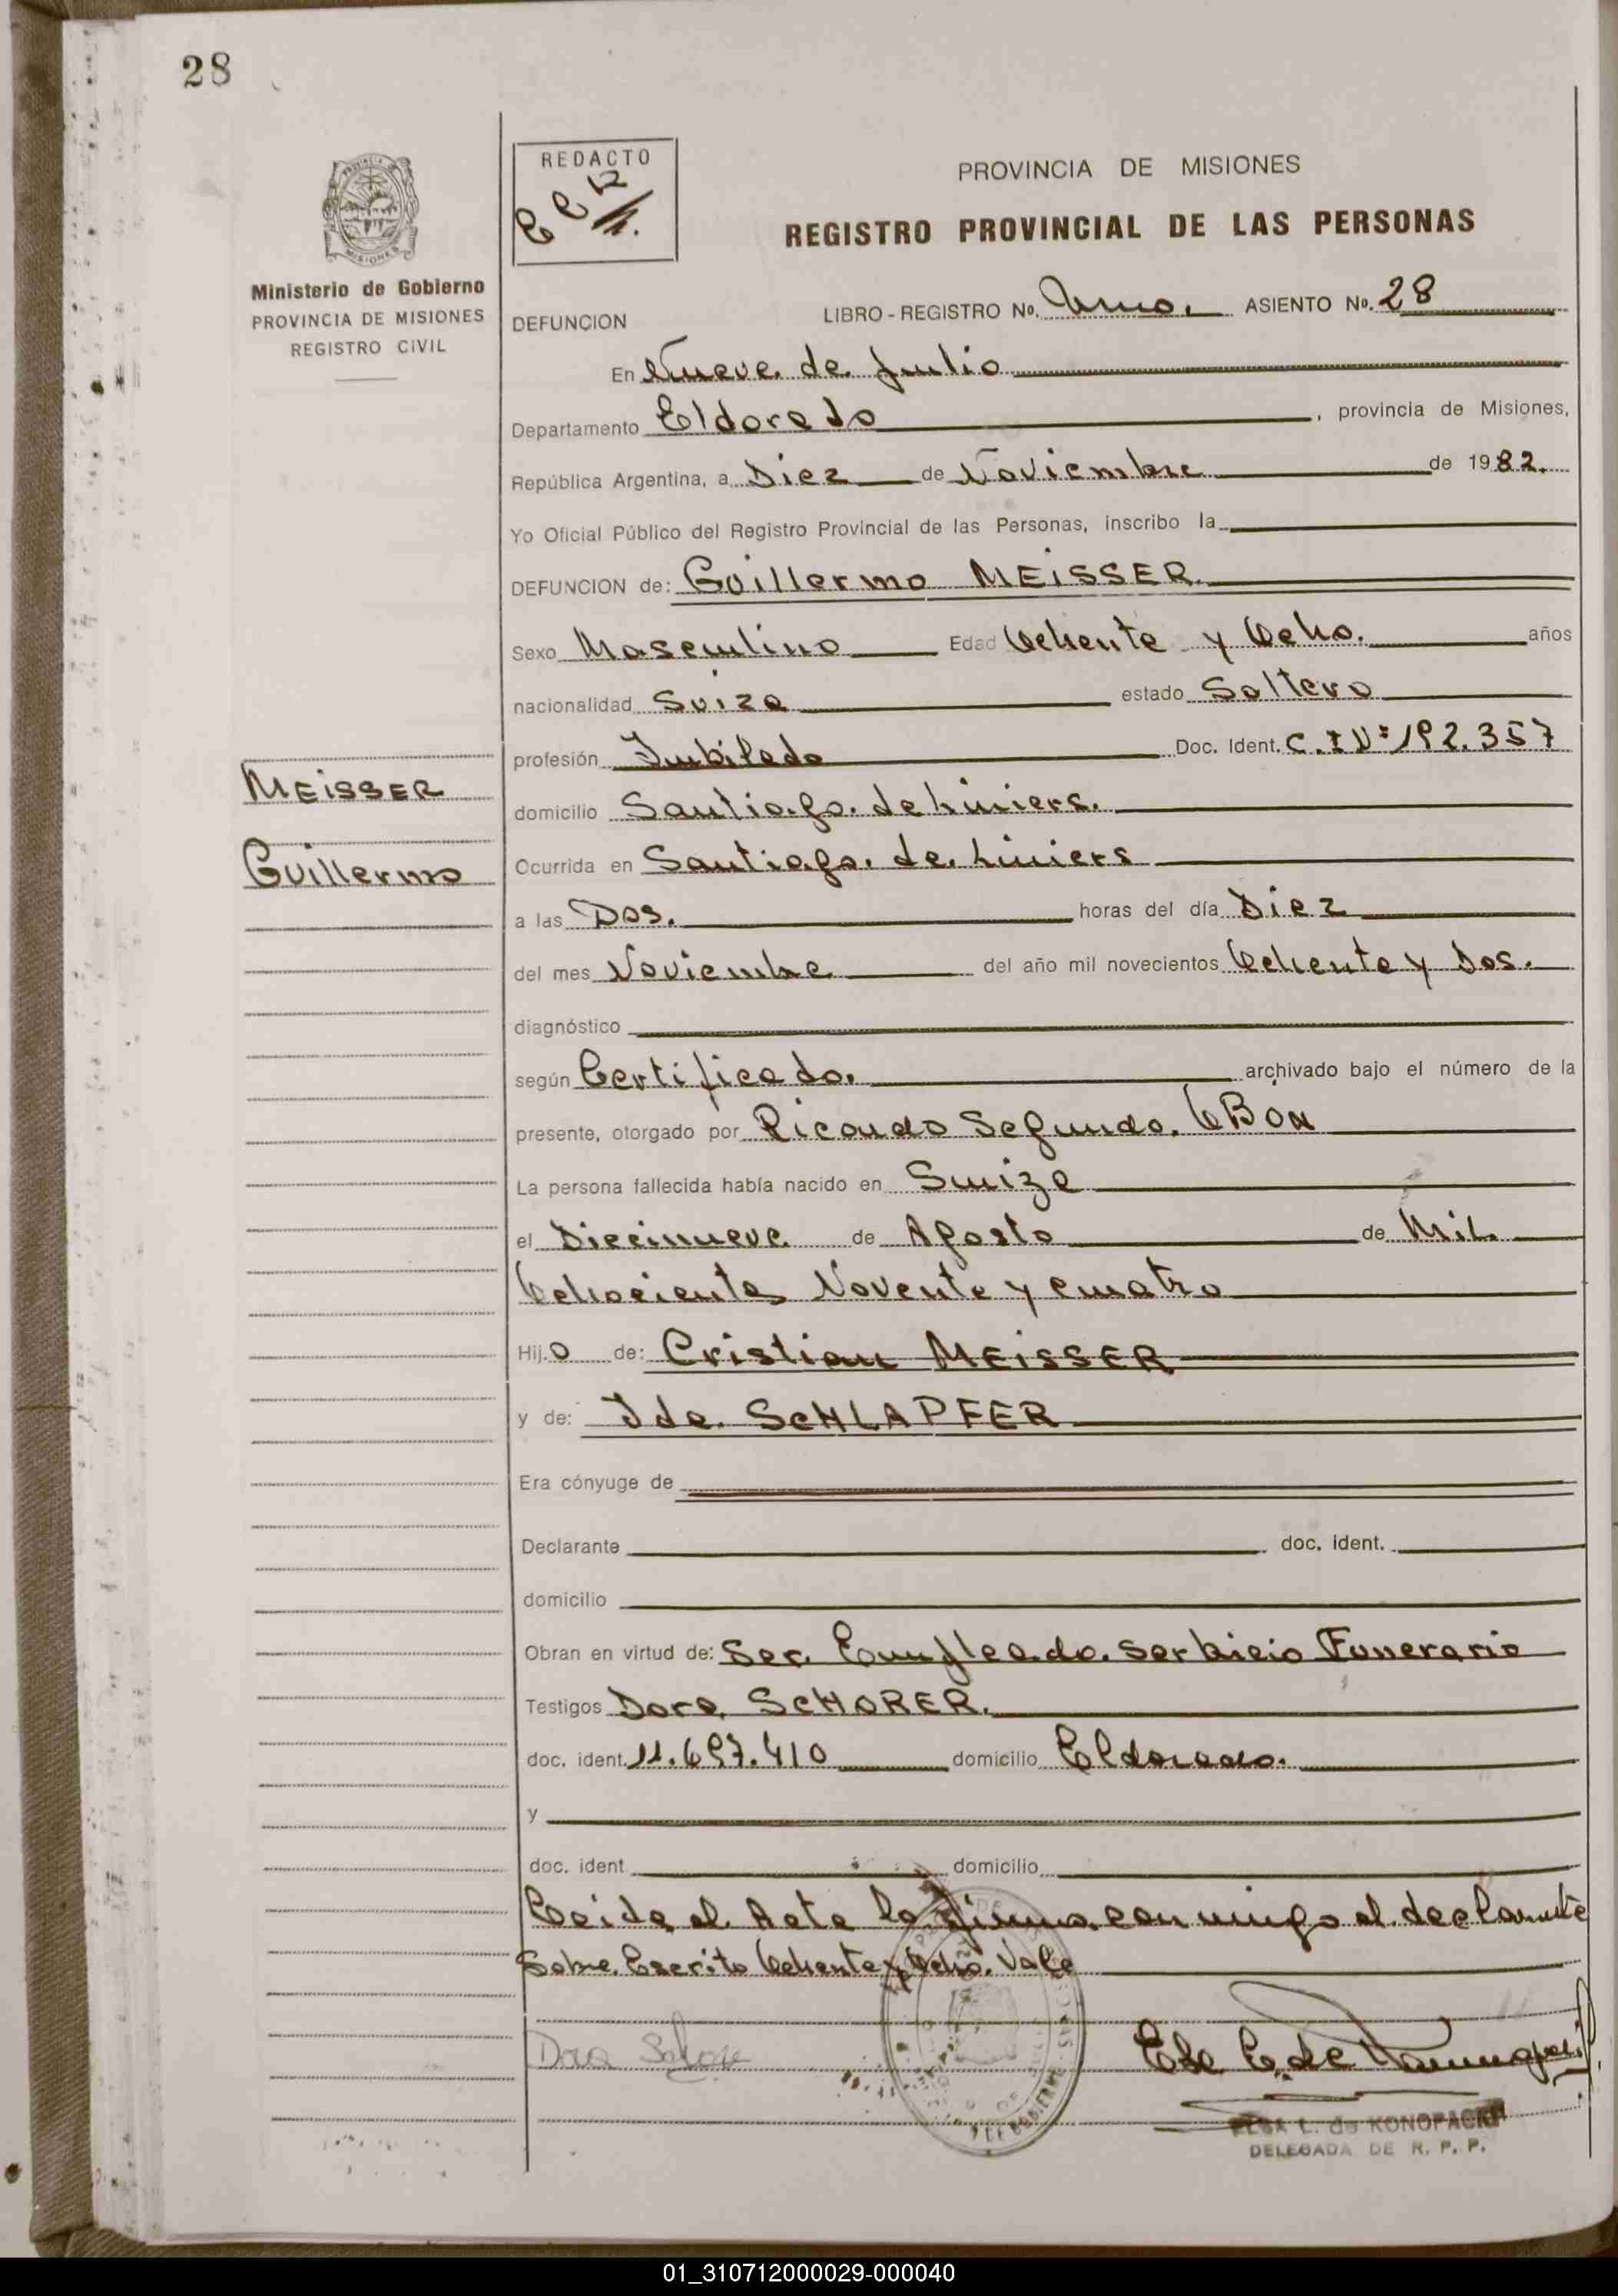 28
PROVINCIA DE MISIONES
REGISTRO PROVINCIAL DE LAS PERSONAS
REDACTO
Ministerio de Gobierno
PROVINCIA DE MISIONES
REGISTRO CIVIL
DEFUNCION
LIBRO - REGISTRO No. Uno. ASIENTO No. 28
En Nueve de Julio
Departamento Eldorado, provincia de Misiones,
República Argentina, a Diez de Noviembre de 1982.
Yo Oficial Público del Registro Provincial de las Personas, inscribo la
DEFUNCION de: Guillermo MEISSER.
Sexo Masculino Edad Ochenta y Ocho. años
nacionalidad Suiza estado Soltero
profesión Jubilado Doc. Ident. C.I Nº 192.357
MEISSER
Guillermo
domicilio Santiago de Liniers.
Ocurrida en Santiago de Liniers
a las Dos. horas del día Diez
del mes Noviembre del año mil novecientos Ochenta y Dos.
diagnóstico
según Certificado. archivado bajo el número de la
presente, otorgado por Ricardo Segundo
La persona fallecida había nacido en Suiza
el Diecinueve de Agosto de Mil
Ochocientos Noventa y cuatro
Hijo de: Cristian MEISSER
y de: Ida SCHLAPFER
Era cónyuge de
Declarante doc. ident.
domicilio
Obran en virtud de: Ser Empleado Serbicio Funerario
Testigos Dora SCHORER.
doc. ident. 11.697.410 domicilio Eldorado.
y
doc. ident domicilio
Leida el Acta la firma conmigo el declarante
Sobre Escrito Ochenta y Ocho. Vale
Dora
ELSA L. de KONOPACKI
DELEGADA DE R. P. P.
01_310712000029-000040